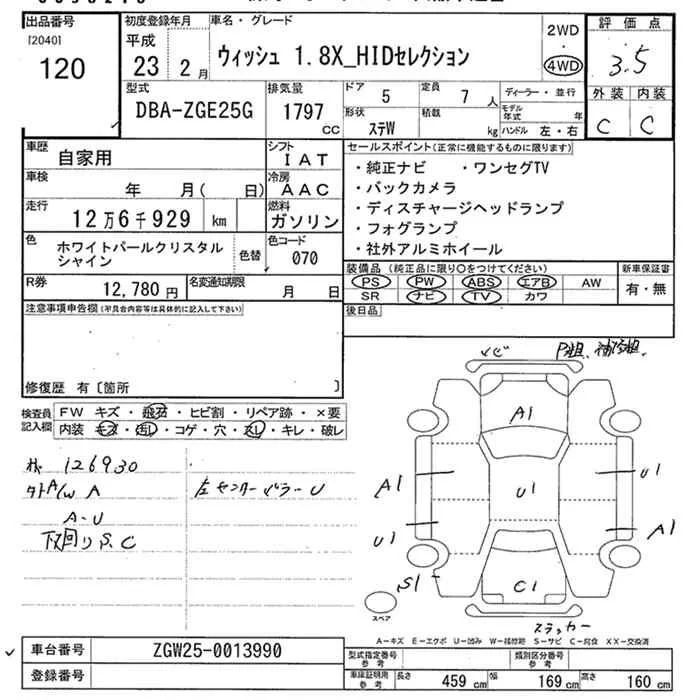 出品番号
[2040]
120
初度登録年月
平成
23 2月
車名・グレード
ウィッシュ 1.8X_HIDセレクション
2WD
・
4WD
評価点
3.5
外装 内装
C C
型式
DBA-ZGE25G
排気量
1797
cc
ドア 5
定員 7人
形状 ステW
積載 kg
ディーラー・並行
モデル年式 年
ハンドル 左・右
車歴
自家用
シフト
IAT
車検
年 月( 日)
冷房
AAC
走行
12万6千929 km
燃料
ガソリン
色
ホワイトパールクリスタル
シャイン
色替
色コード
070
R券
12,780円
名変通知期限
月 日
セールスポイント(正常に機能するものに限ります)
・純正ナビ ・ワンセグTV
・バックカメラ
・ディスチャージヘッドランプ
・フォグランプ
・社外アルミホイール
装備品 (純正品に限り○をつけてください)
PS PW ABS エアB AW
SR ナビ TV カワ
新車保証書
有・無
後日品
注意事項申告欄(不具合内容等は具体的に記入して下さい)
修復歴 有〔箇所 〕
検査員
記入欄
FW キズ・飛石・ヒビ割・リペア跡・×要
内装 キズ・汚レ・コゲ・穴・スレ・キレ・破レ
126930
A/W A
A-U
下回りS.C
左センターピラーU
A1
A1
U1
U1
U1
A1
S1
C1
スペア
ステッカー
A-キズ E-エクボ U-凹み W-補修跡 S-サビ C-腐食 XX-交換済
車台番号
ZGW25-0013990
登録番号
型式指定番号
参考
類別区分番号
参考
車庫証明用
参考
長さ 459 cm
幅 169 cm
高さ 160 cm